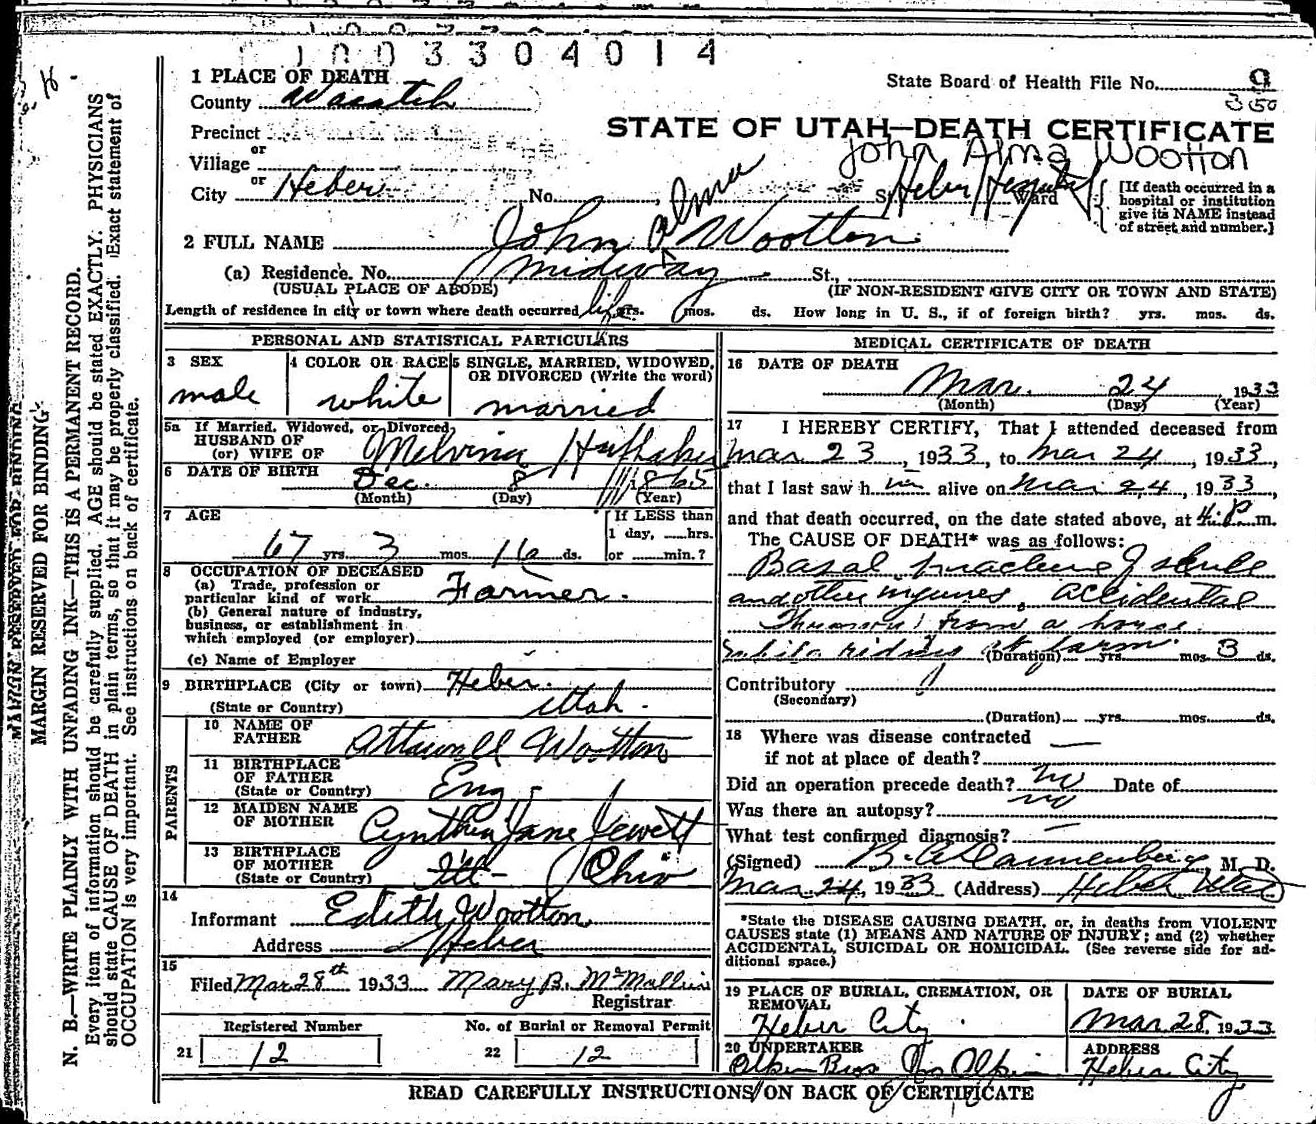 1003304014
1 PLACE OF DEATH
County Wasatch
State Board of Health File No. 9
350
Precinct
or
Village
or
City Heber No. St. Heber Hospital Ward
STATE OF UTAH—DEATH CERTIFICATE
John Alma Wootton
[If death occurred in a
hospital or institution
give its NAME instead
of street and number.]
2 FULL NAME John Alma Wootton
(a) Residence. No. Midway St.,
(USUAL PLACE OF ABODE) (IF NON-RESIDENT GIVE CITY OR TOWN AND STATE)
Length of residence in city or town where death occurred life yrs. mos. ds. How long in U. S., if of foreign birth? yrs. mos. ds.
PERSONAL AND STATISTICAL PARTICULARS
3 SEX
male
4 COLOR OR RACE
white
5 SINGLE, MARRIED, WIDOWED,
OR DIVORCED (Write the word)
married
5a If Married, Widowed, or Divorced
HUSBAND OF
(or) WIFE OF Melvina Huffaker
6 DATE OF BIRTH Dec. 8 1865
(Month) (Day) (Year)
7 AGE
67 yrs. 3 mos. 16 ds.
If LESS than
1 day, hrs.
or min.?
8 OCCUPATION OF DECEASED
(a) Trade, profession or
particular kind of work Farmer.
(b) General nature of industry,
business, or establishment in
which employed (or employer)
(c) Name of Employer
9 BIRTHPLACE (City or town) Heber.
(State or Country) Utah.
PARENTS
10 NAME OF
FATHER Attewall Wootton
11 BIRTHPLACE
OF FATHER
(State or Country) Eng.
12 MAIDEN NAME
OF MOTHER Cynthia Jane Jewett
13 BIRTHPLACE
OF MOTHER
(State or Country) Ohio
14
Informant Edith Wootton
Address Heber
15
Filed Mar 28th 1933 Mary B. McMullin
Registrar
Registered Number
21 12
No. of Burial or Removal Permit
22 12
MEDICAL CERTIFICATE OF DEATH
16 DATE OF DEATH
Mar. 24 1933
(Month) (Day) (Year)
17 I HEREBY CERTIFY, That I attended deceased from
Mar 23, 1933, to Mar 24, 1933,
that I last saw him alive on Mar 24, 1933,
and that death occurred, on the date stated above, at 4:P m.
The CAUSE OF DEATH* was as follows:
Basal fracture of skull
and other injuries, accidental
Thrown from a horse
while riding at farm (Duration) yrs. mos. 3 ds.
Contributory
(Secondary)
(Duration) yrs. mos. ds.
18 Where was disease contracted
if not at place of death?
Did an operation precede death? no Date of
Was there an autopsy? no
What test confirmed diagnosis?
(Signed) B. A. Dannenberg M. D.
Mar. 24, 1933 (Address) Heber Utah
*State the DISEASE CAUSING DEATH, or, in deaths from VIOLENT
CAUSES state (1) MEANS AND NATURE OF INJURY; and (2) whether
ACCIDENTAL, SUICIDAL OR HOMICIDAL. (See reverse side for ad-
ditional space.)
19 PLACE OF BURIAL, CREMATION, OR
REMOVAL
Heber City
DATE OF BURIAL
Mar. 28, 1933
20 UNDERTAKER
Olpin Bros Olpin
ADDRESS
Heber City
READ CAREFULLY INSTRUCTIONS ON BACK OF CERTIFICATE
MARGIN RESERVED FOR BINDING
N. B.—WRITE PLAINLY WITH UNFADING INK—THIS IS A PERMANENT RECORD.
Every item of information should be carefully supplied. AGE should be stated EXACTLY. PHYSICIANS
should state CAUSE OF DEATH in plain terms, so that it may be properly classified. Exact statement of
OCCUPATION is very important. See instructions on back of certificate.